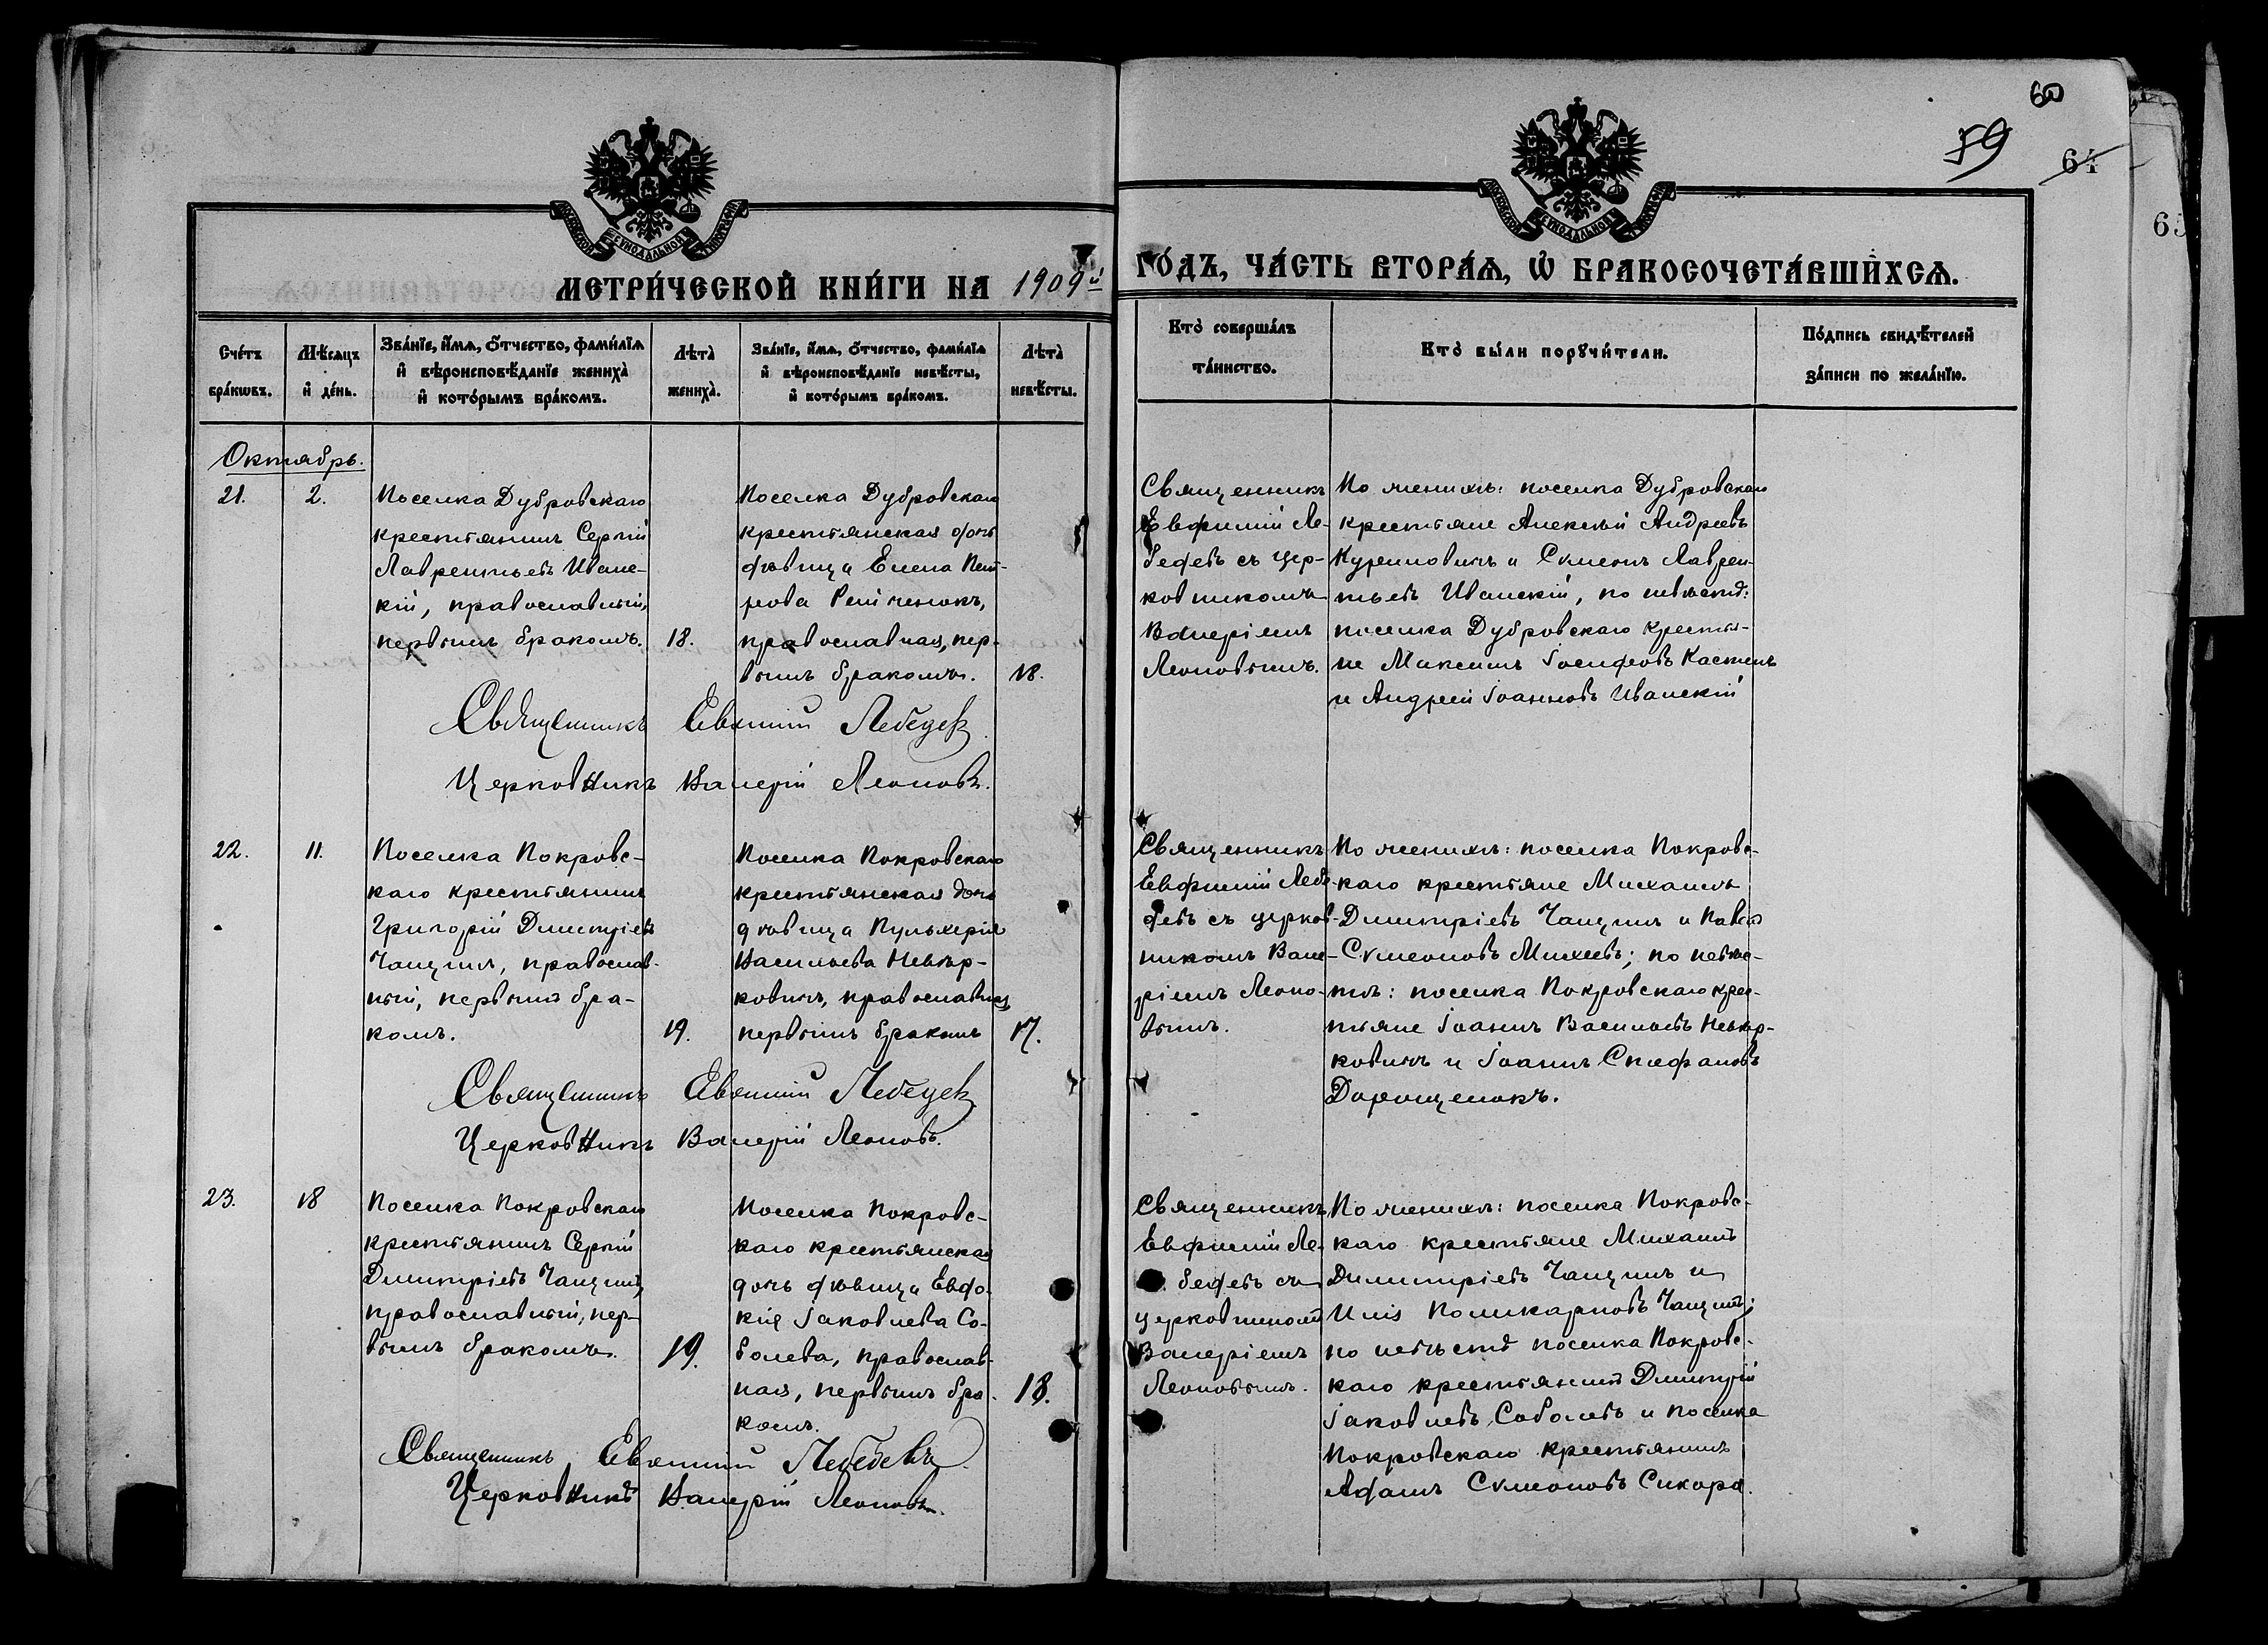 60
59
64
65
МЕТРИ́ЧЕСКОЙ КНИ́ГИ НА 1909й
ГО́ДЪ, ЧА́СТЬ ВТОРА́Ѧ, Ѡ҆ БРАКОСОЧЕТА́ВШИХСѦ.
Сче́тъ бра́кѡвъ.
Мѣ́сѧцъ и҆ де́нь.
Зва́нїе, и҆́мѧ, ѻ҆́тчество, фами́лїѧ и҆ вѣроисповѣ́данїе жениха̀ и҆ кото́рымъ бра́комъ.
Лѣ́та жениха̀.
Зва́нїе, и҆́мѧ, ѻ҆́тчество, фами́лїѧ и҆ вѣроисповѣ́данїе невѣ́сты, и҆ кото́рымъ бра́комъ.
Лѣ́та невѣ́сты.
Кто̀ соверша́лъ та́инство.
Кто̀ бы́ли порꙋчи́тели.
По́дпись свидѣ́телей за́писи по жела́нїю.
Октябрь.
21.
2.
Поселка Дубровскаго
крестьянинъ Сергій
Лаврентьевъ Иванс-
кій, православный,
первымъ бракомъ.
18.
Поселка Дубровскаго
крестьянская дочь
дѣвица Елена Пет-
рова
православная, пер-
вымъ бракомъ.
18.
Священникъ
Евфимій Ле-
бедевъ съ цер-
ковникомъ
Валеріемъ
Леоновымъ.
По женихѣ: поселка Дубровскаго
крестьяне Алексѣй Андреевъ
и Сѵмеонъ Лаврен-
тьевъ Иванскій, по невѣстѣ:
поселка Дубровскаго крестья-
не Максимъ Іосифовъ
и Андрей Іоанновъ Иванскій
Священникъ Евѳимій Лебедевъ.
Церковникъ Валерій Леоновъ.
22.
11.
Поселка Покровс-
каго крестьянинъ
Григорій Димитріевъ
Чащинъ, православ-
ный, первымъ бра-
комъ.
19.
Поселка Покровскаго
крестьянская дочь
дѣвица Пульхерія
Васильева Невѣр-
ковичъ, православная
первымъ бракомъ
17.
Священникъ
Евфимій Лебе-
девъ съ церков-
никомъ Вале-
ріемъ Леоно-
вымъ.
По женихѣ: поселка Покровс-
каго крестьяне Михаилъ
Димитріевъ Чащинъ и Павелъ
Сѵмеоновъ Михеевъ; по невѣс-
тѣ: поселка Покровскаго крес-
тьяне Іоаннъ Васильевъ Невѣр-
ковичъ и Іоаннъ Стефановъ
Дорощенокъ.
Священникъ Евѳимій Лебедевъ
Церковникъ Валерій Леоновъ.
23.
18
Поселка Покровскаго
крестьянинъ Сергій
Димитріевъ Чащинъ,
православный, пер-
вымъ бракомъ.
19.
Поселка Покровс-
каго крестьянская
дочь дѣвица Евдо-
кія Іаковлева Со-
болева, православ-
ная, первымъ бра-
комъ.
18.
Священникъ
Евфимій Ле-
бедевъ съ
церковникомъ
Валеріемъ
Леоновымъ.
По женихѣ: поселка Покровс-
каго крестьяне Михаилъ
Димитріевъ Чащинъ и
Илія Поликарповъ Чащинъ;
по невѣстѣ поселка Покровс-
каго крестьянинъ Димитрій
Іаковлевъ Соболевъ и поселка
Покровскаго крестьянинъ
Адамъ Сѵмеоновъ Сикора.
Священникъ Евѳимій Лебедевъ
Церковникъ Валерій Леоновъ.